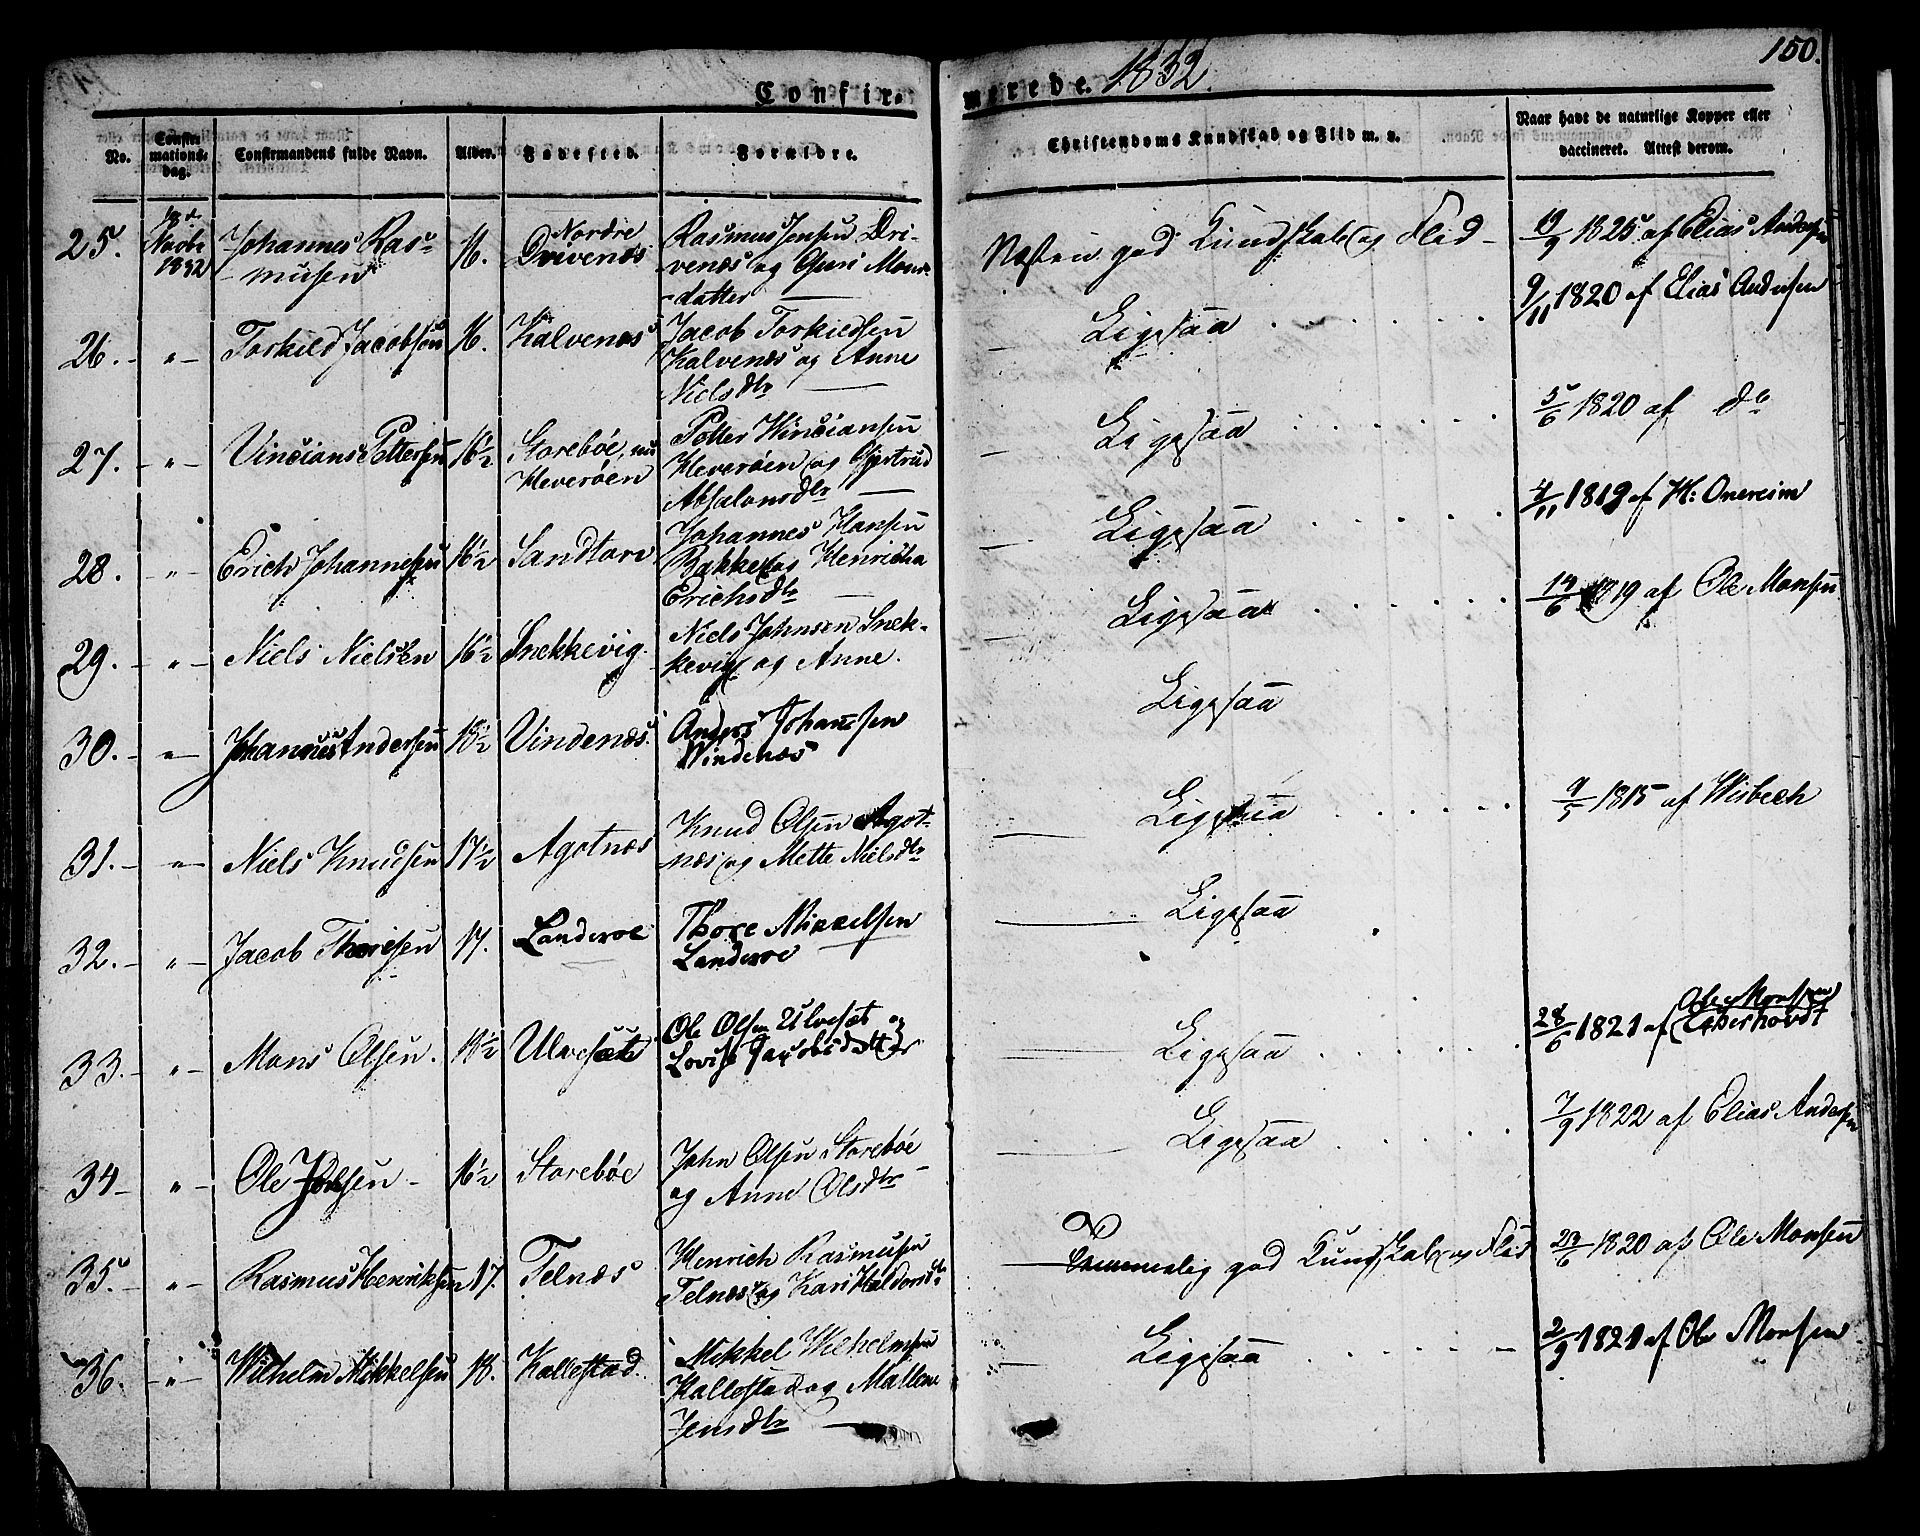 150.
Confir=
merede. 1832.
No.
Confir
mations=
dag.
Confirmandens fulde Navn.
Alder.
Fødested.
Forældre.
Christendoms Kundskab og Flid m. v.
Naar havt de naturlige Kopper eller
vaccineret. Attest derom.
25.
18de
Novbr
1832
Johannes Ras-
musen
16.
Nordre
Drivenæs
Rasmus Jensen Dri-
venæs og Guri Mons-
datter
Næsten god Kundskab og Flid -
19/9 1825 af Elias Andersen
26.
-"-
Torkild Jacobsen
16.
Kalvenæs
Jacob Torkildsen
Kalvenæs og Anne
Nielsdtr
Ligesaa
9/11 1820 af Elias Andersen
27.
-"-
Vincians Pettersen
16½
Storebøe, nu
Heverøen
Petter Vinciansen
Heverøen og Gjertrud
Absalonsdtr
Ligesaa
5/6 1820 af do
28.
-"-
Erich Johannesen
16½
Sandtorv
Johannes Hansen
Bakke og Henricha
Erichsdtr
Ligesaa
4/11 1819 af H: Onereim
29.
-"-
Niels Nielsen
16½
Snekkevig.
Niels Johnsen Snek-
kevig og Anne.
Ligesaa
14/6 1819 af Ole Monsen
30.
-"-
Johannes Andersen
18½
Vindenæs.
Anders Johannesen
Vindenæs
Ligesaa
31.
-"-
Niels Knudsen
17½
Agotnæs
Knud Olsen Agot-
næs og Mette Nielsdtr
Ligesaa
9/5 1815 af Wisbech
32.
-"-
Jacob Thoresen
17.
Landeroe
Thore Mikkelsen
Landeroe
Ligesaa
33.
-"-
Mons Olsen.
18½
Ulvesæt
Ole Olsen Ulvesæt og
Lovise Jacobsdatter
Ligesaa
28/6 1821 af Ole Monsen
34
-"-
Ole Johnsen
16½
Storebøe
John Olsen Storebøe
og Anne Olsdtr
Ligesaa
7/9 1822 af Elias Andersen
35.
-"-
Rasmus Henriksen
17.
Telnæs
Henrich Rasmusen
Telnæs og Kari Haldorsdtr
god Kundskab og Flid
23/6 1820 af Ole Monsen
36.
-"-
Wilhelm Mikkelsen
18.
Kallestad.
Mikkel Wilhelmsen
Kallestad og Mallene
Jensdtr
Ligesaa
2/9 1821 af Ole Monsen